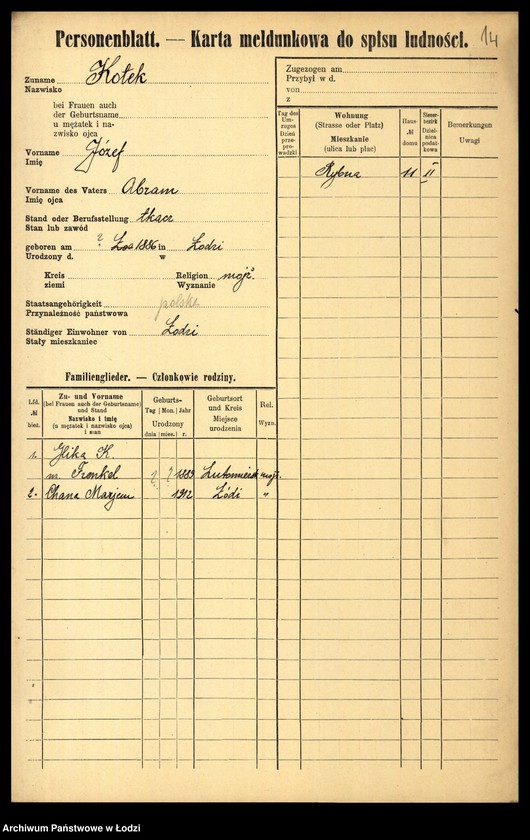 14
Personenblatt. — Karta meldunkowa do spisu ludności.
Zuname Kołek
Nazwisko
bei Frauen auch
der Geburtsname
u mężatek i na-
zwisko ojca
Vorname Józef
Imię
Vorname des Vaters Abram
Imię ojca
Stand oder Berufsstellung tkacz
Stan lub zawód
geboren am ? 1886 in Łodzi
Urodzony d. w
Kreis
ziemi
Religion mojż.
Wyznanie
Staatsangehörigkeit polska
Przynależność państwowa
Ständiger Einwohner von Łodzi
Stały mieszkaniec
Zugezogen am
Przybył w d.
von
z
Tag des Um-zuges
Dzień prze-prowadzki
Wohnung
(Strasse oder Platz)
Mieszkanie
(ulica lub plac)
Haus-
№
domu
Steuer-bezirk
Dziel-nica podat-kowa
Bemerkungen
Uwagi
Rybna 11 II
Familienglieder. — Członkowie rodziny.
Lfd.
№
bież.
Zu- und Vorname
(bei Frauen auch der Geburtsname)
und Stand
Nazwisko i imię
(u mężatek i nazwisko ojca)
i stan
Geburts-
Tag Mon. Jahr
Urodzony
dnia mies. r.
Geburtsort
und Kreis
Miejsce
urodzenia
Rel.
Wyzn.
1. K.
Frenkel ? ? 1889 Lutomiersk mojż.
2. Chana Marjem 1912 Łódź "
Archiwum Państwowe w Łodzi